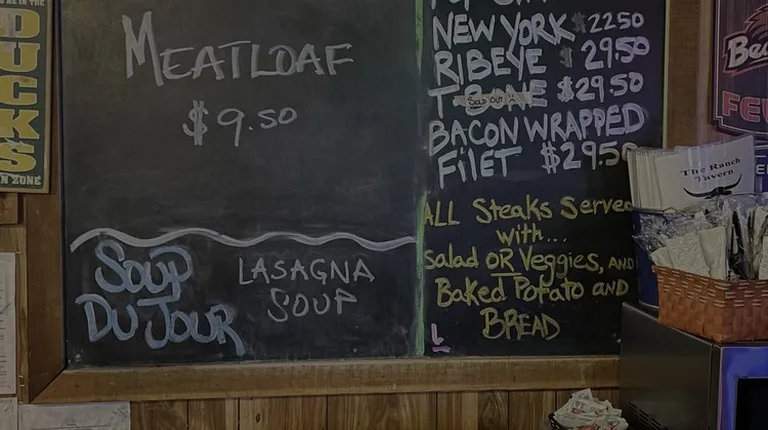 DUCKS
N ZONE
MEATLOAF
$9.50
SOUP
DU JOUR
LASAGNA
SOUP
NEW YORK $22.50
RIBEYE $29.50
T BONE $29.50
SOLD OUT
BACON WRAPPED
FILET $29.50
ALL Steaks Served
with...
Salad OR Veggies, AND
Baked Potato AND
BREAD
The Ranch
Tavern